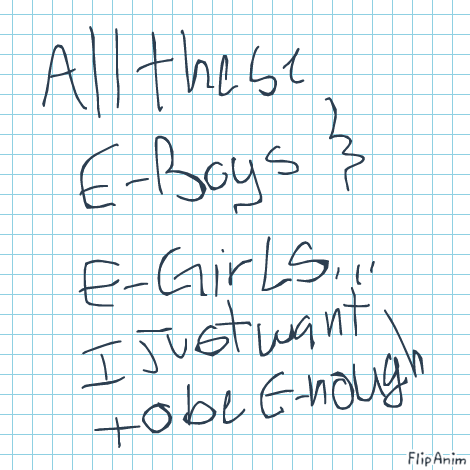 All these
E-Boys }
E-GirLs...
I just want
to be E-nough
FlipAnim